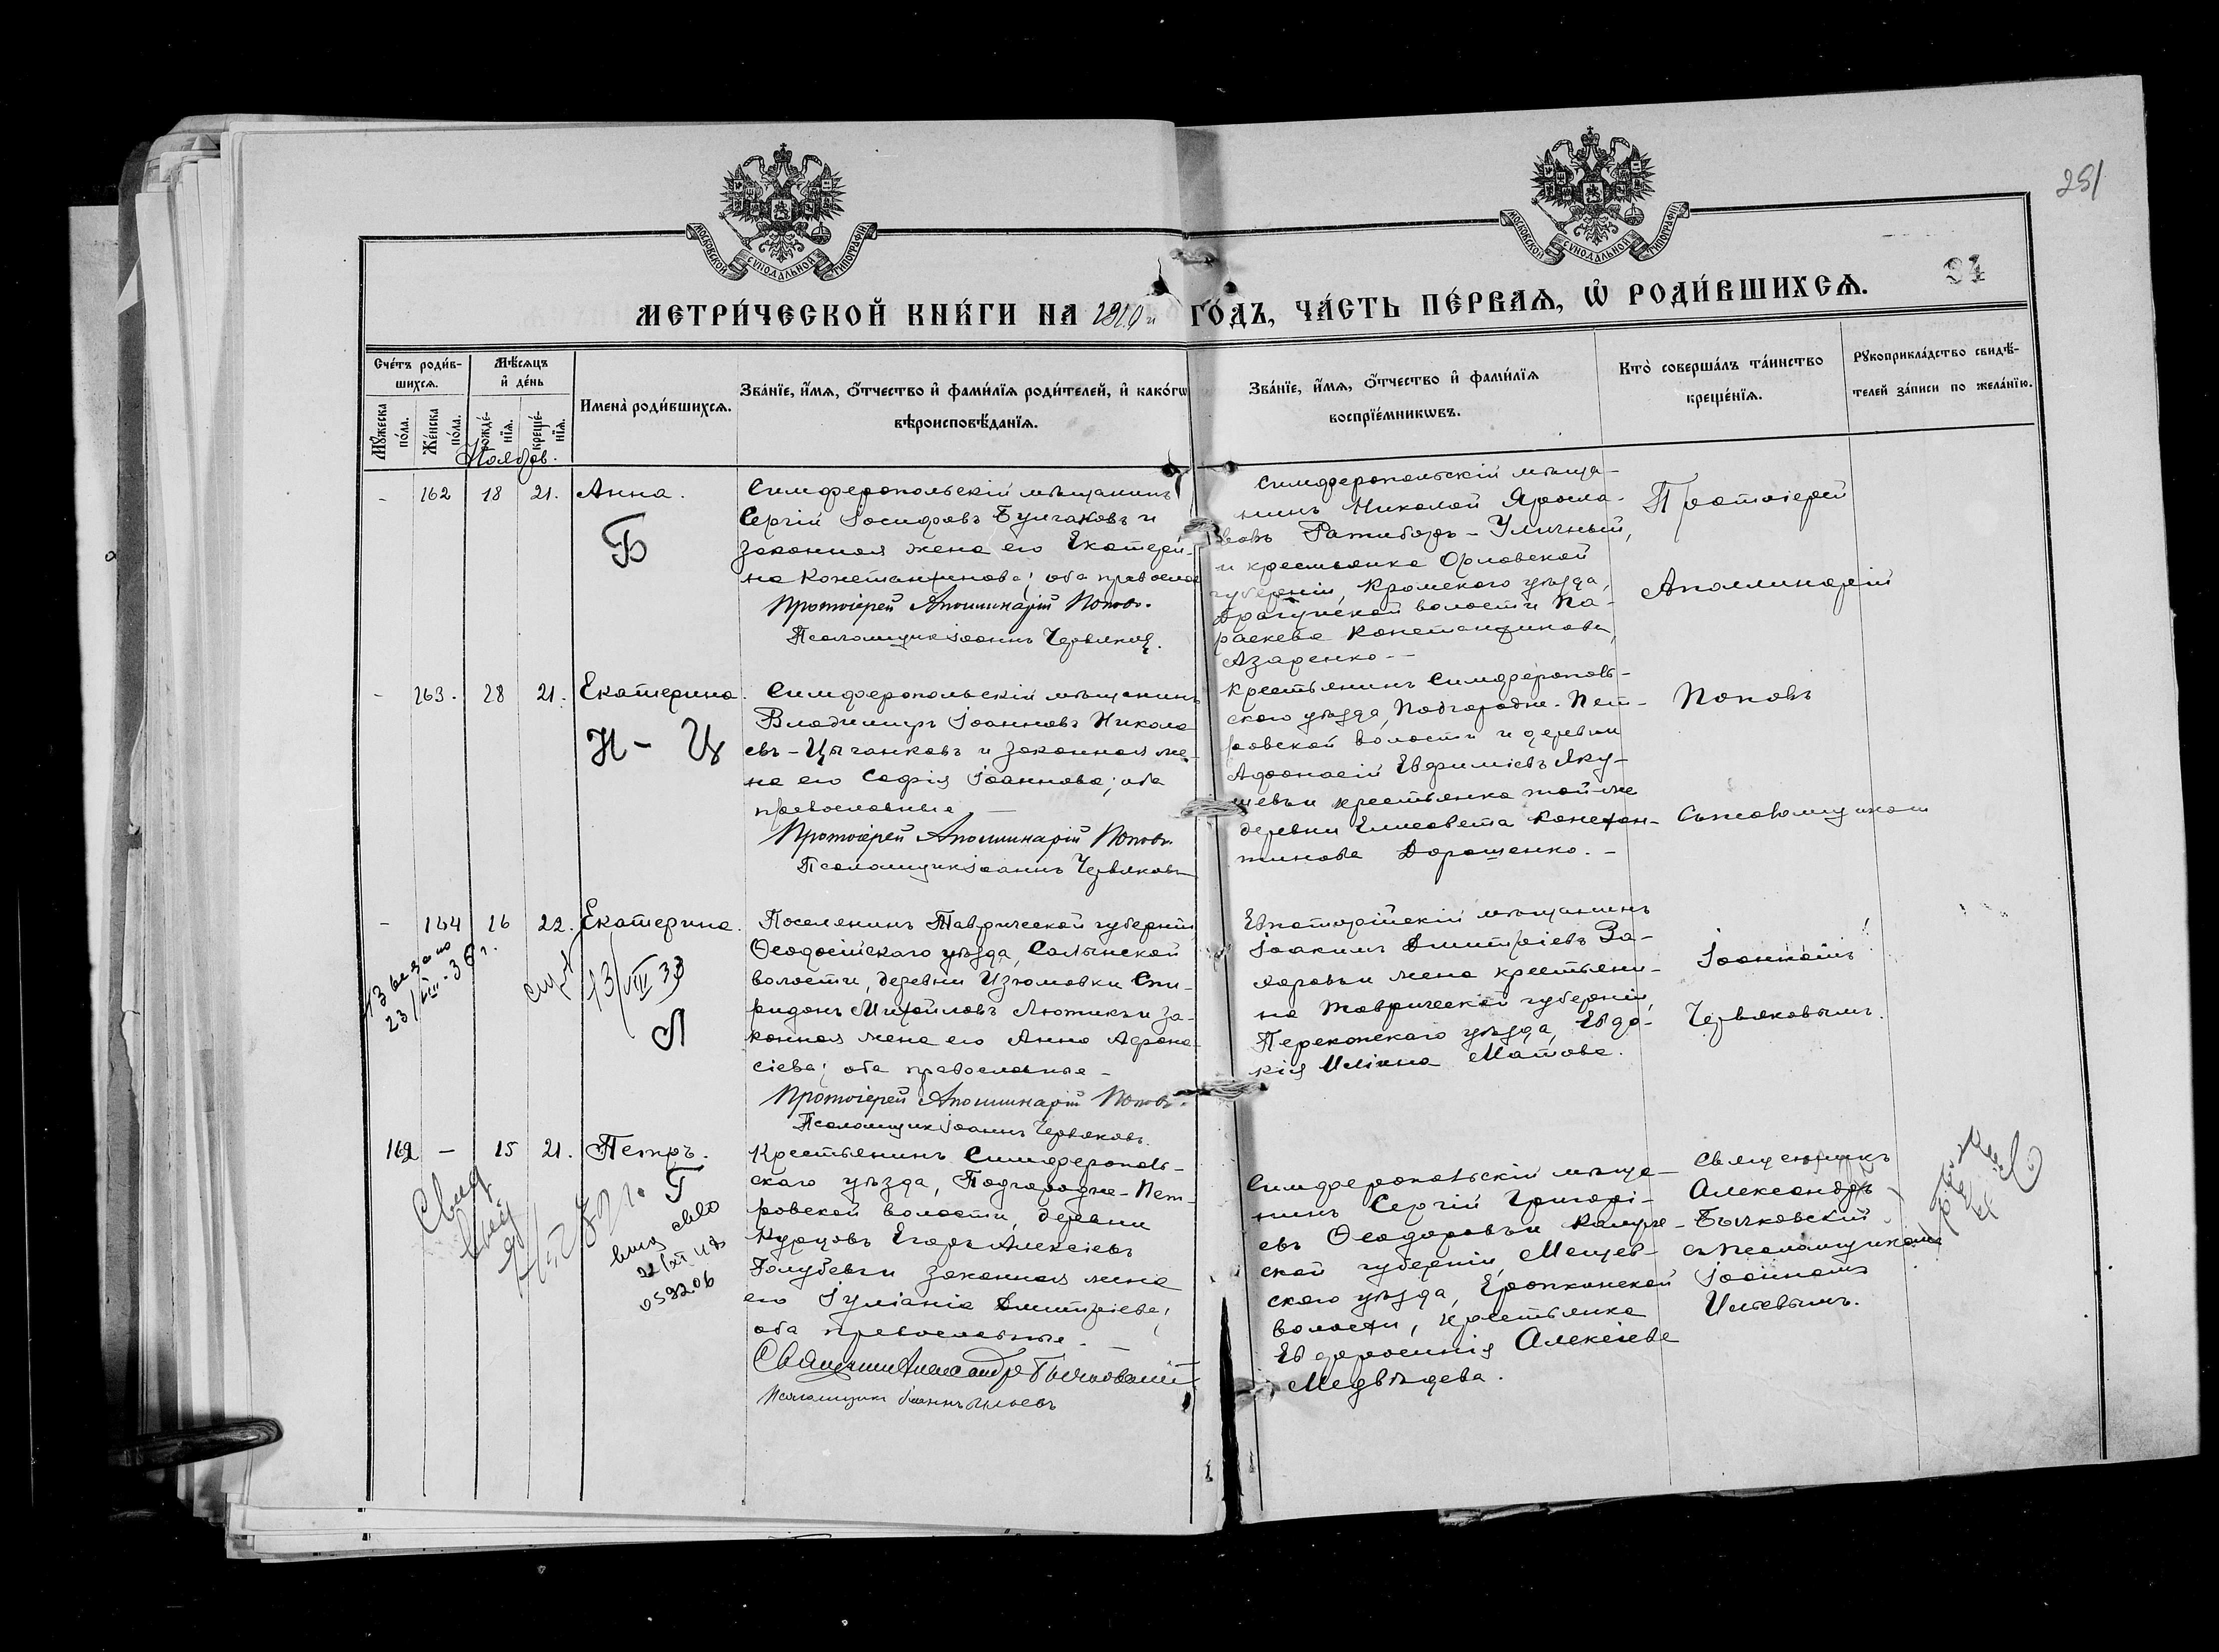 251
МОСКОВСКОЙ СУНОДАЛЬНОЙ ТИПОГРАФІИ
МОСКОВСКОЙ СУНОДАЛЬНОЙ ТИПОГРАФІИ
94
МЕТРИ́ЧЕСКОЙ КНИ́ГИ НА 1910 ГО́ДЪ, ЧА́СТЬ ПЕ́РВАѦ, Ѡ РОДИ́ВШИХСѦ.
Сче́тъ роди́в-
шихсѧ.
Мѣ́сѧцъ
и де́нь
Мꙋ́жеска по́ла.
Же́нска по́ла.
рожде́-
нїѧ.
креще́-
нїѧ.
Имена̀ роди́вшихсѧ.
Зва́нїе, и́мѧ, ѻ́тчество и фами́лїѧ роди́телей, и како́гѡ
вѣроисповѣ́данїѧ.
Зва́нїе, и́мѧ, ѻ́тчество и фами́лїѧ
воспрїе́мникѡвъ.
Кто̀ соверша́лъ та́инство
креще́нїѧ.
Рꙋкоприкла́дство свидѣ́-
телей за́писи по жела́нїю.
Ноябрь.
- 162 18 21. Анна.
Б
Симферопольскій мѣщанинъ
Сергій Іосифовъ Булгаковъ и
законная жена его Екатери-
на Константинова; оба православ
Протоіерей Аполлинарій Поповъ.
Псаломщикъ Іоаннъ Червяковъ.
Симферопольскій мѣща-
нинъ Николай Яросла-
вовъ Ратиборъ-Уличный,
и крестьянка Орловской
губерніи, Кромскаго уѣзда,
волости Па-
раскева Константинова
Азаренко -
Протоіерей
Аполлинарій
- 163. 18 21. Екатерина.
Н - Ц
Симферопольскій мѣщанинъ
Владимиръ Іоанновъ Никола
евъ-Цыганковъ и законная же-
на его Софія Іоаннова; оба
православные —
Протоіерей Аполлинарій Поповъ.
Псаломщикъ Іоаннъ Червяковъ
Крестьянинъ Симферополь-
скаго уѣзда, Подгородне-Пет-
ровской волости и деревни
Афонасій Евфиміевъ Яку-
шевъ и крестьянка той-же
деревни Елисавета Констан-
тинова Дорошенко. -
Поповъ
съ псаломщикомъ
- 164 16 22. Екатерина.
23/VIII-36 г.
13/VIII 33
Л
Поселянинъ Таврической губерніи
Ѳеодосійскаго уѣзда, Салынской
волости, деревни Изюмовки Спи-
ридонъ Михайловъ Лютикъ и за-
конная жена его Анна Афана-
сіева; оба православные -
Протоіерей Аполлинарій Поповъ.
Псаломщикъ Іоаннъ Червяковъ.
Евпаторійскій мѣщанинъ
Іоакимъ Димитріевъ За-
харовъ и жена крестьяни-
на Таврической губерніи,
Перекопскаго уѣзда, Евдо-
кія Ильина Матова.
Іоанномъ
Червяковымъ.
162 — 15 21. Петръ.
Г
059206
Крестьянинъ Симферополь-
скаго уѣзда, Подгородне-Пет-
ровской волости, деревни
Курцовъ Егоръ Алексіевъ
Голубевъ и законная жена
его Іуліанія Димитріева;
оба православные.
Священникъ Александръ Бычковскій
Псаломщикъ Іоаннъ Ильевъ
Симферопольскій мѣща-
нинъ Сергій Григорі-
евъ Ѳеодоровъ и Калуж-
ской губерніи, Мещев-
скаго уѣзда, Еропкинской
волости, крестьянка
Евфросинія Алексіева
Медвѣдева.
Священникъ
Александръ
Бычковскій
съ псаломщикомъ
Іоанномъ
Ильевымъ.